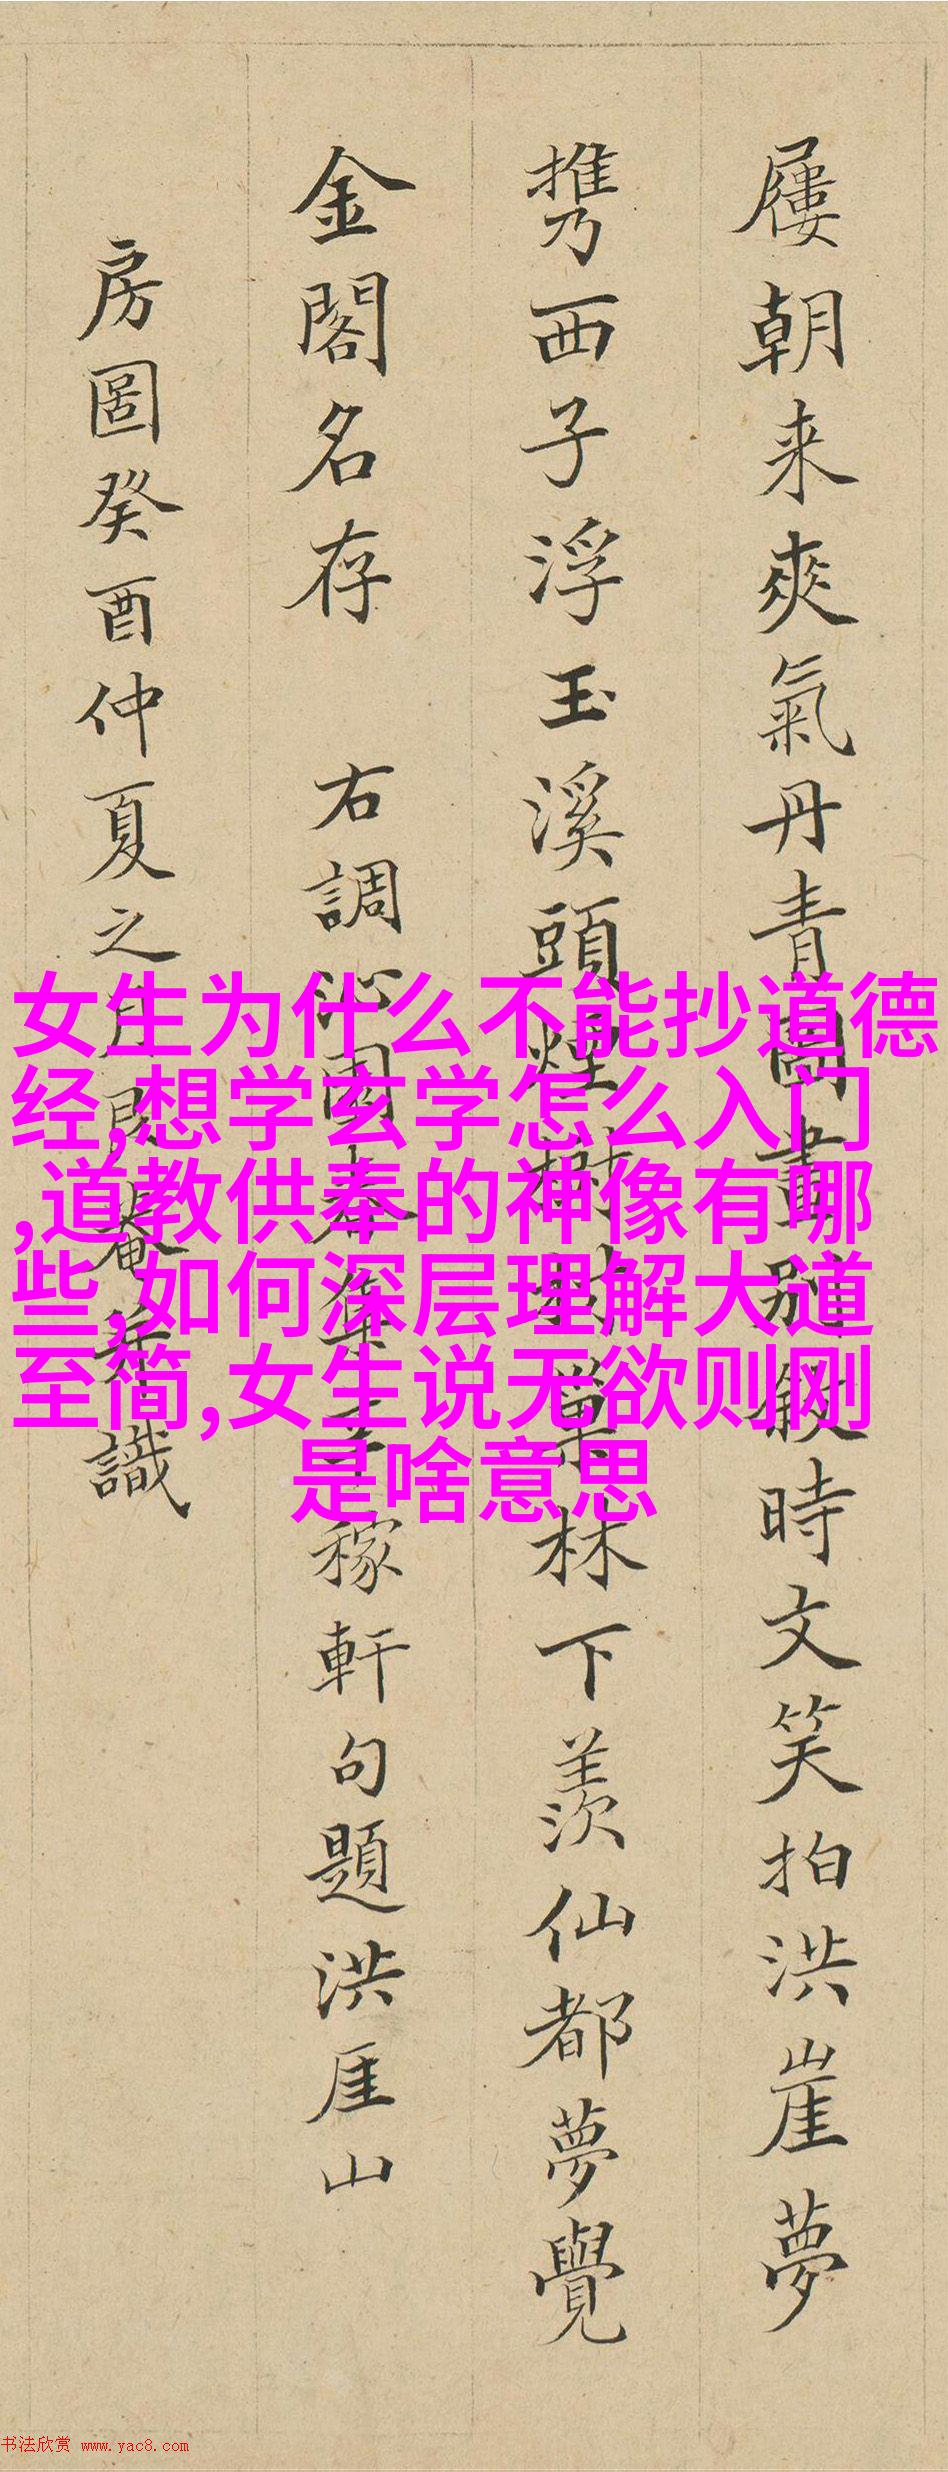 屢朝来爽氣丹青圖畫別時文笑拍洪崖夢
携西子浮玉溪頭煙樹巢林下羨仙都夢覺
金閣名存 右調沁園春集辛稼軒句題洪厓山
房圖癸酉仲夏之月艮庵并識
女生为什么不能抄道德
经,想学玄学怎么入门
,道教供奉的神像有哪
些,如何深层理解大道
至简,女生说无欲则刚
是啥意思
书法欣赏 www.yac8.com